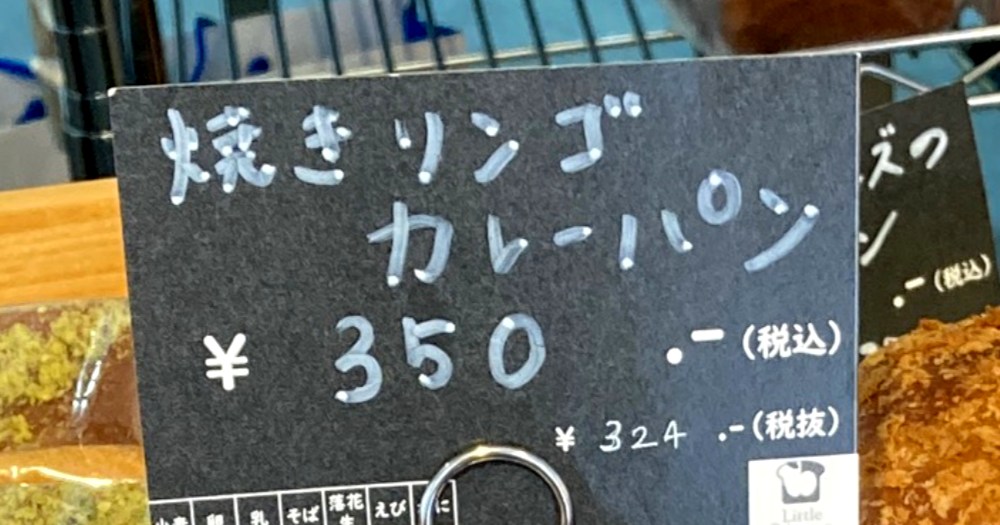 焼きリンゴ
カレーパン
¥ 350 .-(税込)
¥ 324 .-(税抜)
卵 乳 そば 落花生 えび
Little
ズの
ン
.-(税込)